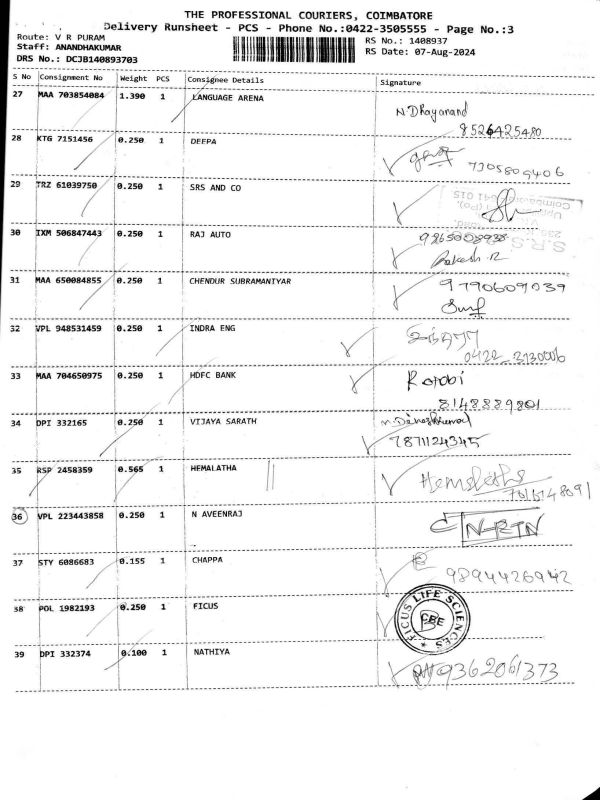 THE PROFESSIONAL COURIERS, COIMBATORE
Delivery Runsheet - PCS - Phone No.:0422-3505555 - Page No.:3
Route: V R PURAM
RS No.: 1408937
Staff: ANANDHAKUMAR
RS Date: 07-Aug-2024
DRS No.: DCJB140893703
S No Consignment No Weight PCS Consignee Details Signature
27 MAA 703854084 1.390 1 LANGUAGE ARENA
N.Dhayanand
8526425480
28 KTG 7151456 0.250 1 DEEPA
7305809406
29 TRZ 61039750 0.250 1 SRS AND CO
S.R.S
30 IXM 506847443 0.250 1 RAJ AUTO
Rakesh.R
31 MAA 650084855 0.250 1 CHENDUR SUBRAMANIYAR
9790609039
32 VPL 948531459 0.250 1 INDRA ENG
0422_3130006
33 MAA 704650975 0.250 1 HDFC BANK
8148889801
34 DPI 332165 0.250 1 VIJAYA SARATH
7871124345
35 RSP 2458359 0.565 1 HEMALATHA
Hemalatha
36 VPL 223443858 0.250 1 N AVEENRAJ
N-RTN
37 STY 6086683 0.155 1 CHAPPA
9894426942
38 POL 1982193 0.250 1 FICUS
FICUS LIFE SCIENCES
CBE
39 DPI 332374 0.100 1 NATHIYA
9362061373